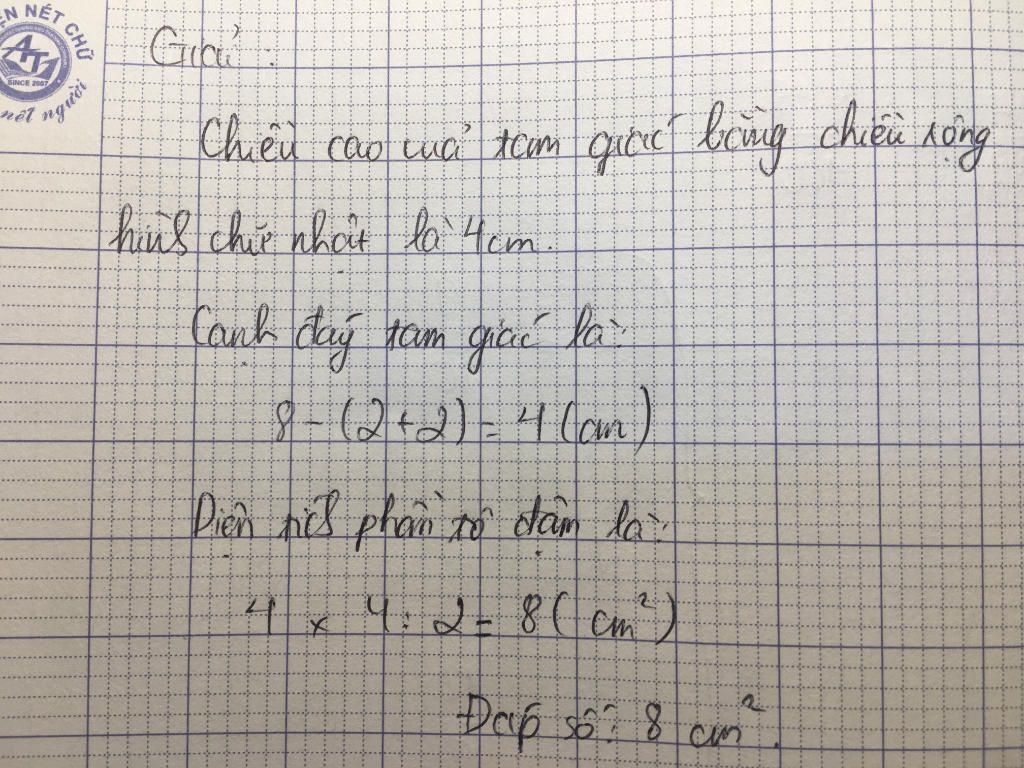 ỆN NÉT CHỮ
SINCE 2007
nết người
Giải:
Chiều cao của tam giác bằng chiều rộng
hình chữ nhật là 4cm.
Cạnh đáy tam giác là:
8 - (2 + 2) = 4 (cm)
Diện tích phần tô đậm là:
4 x 4 : 2 = 8 ( cm²)
Đáp số: 8 cm².